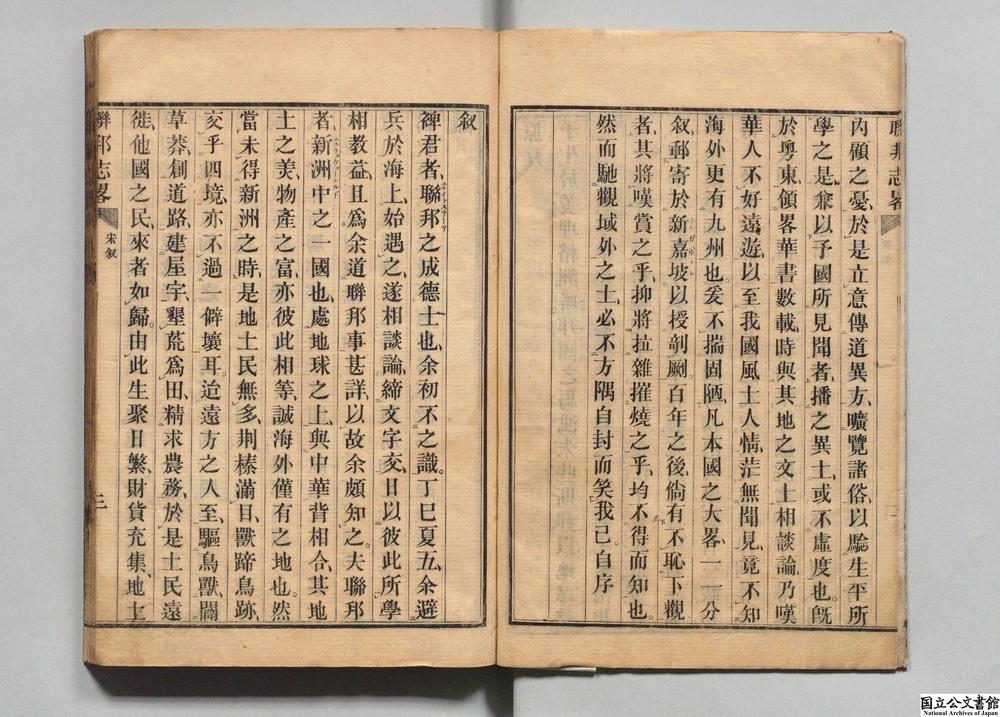 聯邦志畧
內顧之憂、於是立意傳道異方、曠覽諸俗、以騐生平所
學之是、兼以予國所見聞者、播之異土、或不虛度也。旣
於粵東、領畧華書數載、時與其地之文士相談論、乃嘆
華人不好遠遊、以至我國風土人情、茫無聞見、竟不知
海外更有九州也、爰不揣固陋、凡本國之大畧、一一分
叙、郵寄於新嘉坡、以授剞劂、百年之後、倘有不恥下觀
者、其將嘆賞之乎、抑將拉雜摧燒之乎、均不得而知也。
然而馳觀域外之士、必不方隅自封而笑我已、自序
叙
裨君者、聯邦之成德士也、余初不之識。丁巳夏五、余避
兵於海上、始遇之、遂相談論、締文字交、日以彼此所學
相教益、且爲余道聯邦事甚詳、以故余頗知之。夫聯邦
者、新洲中之一國也、處地球之上、與中華背相合、其地
土之美、物產之富、亦彼此相等、誠海外僅有之地也。然
當未得新洲之時、是地土民無多、荆榛滿目、獸蹄鳥跡、
交乎四境、亦不過一僻壤耳、迨遠方之人至、驅鳥獸、闢
草莽、創道路、建屋宇、墾荒爲田、精求農務、於是土民遠
徙、他國之民、來者如歸。由此生聚日繁、財貨充集、地土
聯邦志畧
宋叙
國立公文書館
National Archives of Japan